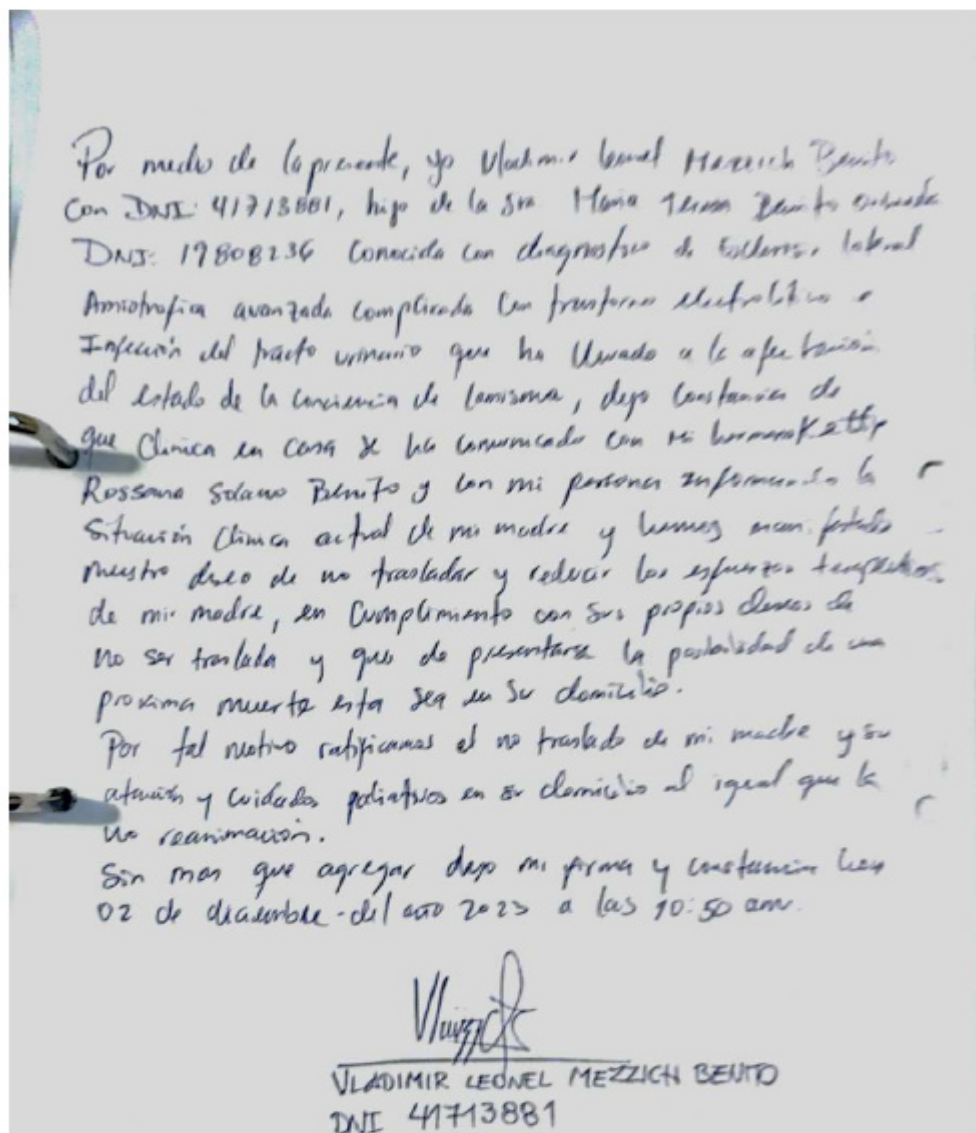 Por medio de la presente, yo Vladimir Leonel Mezzich Benito
Con DNI: 41713881, hijo de la Sra. Maria Teresa Benito
DNI: 19808236 Conocida con diagnostico de Esclerosis lateral
Amiotrofica avanzada complicada con trastorno electrolitico e
Infección del tracto urinario que ha llevado a la afectación
del estado de la conciencia de la misma, dejo constancia de
que Clinica en casa se ha comunicado con mi hermana Kettip
Rossana Solano Benito y con mi persona informando la
Situación Clinica actual de mi madre y hemos manifestado
nuestro deseo de no trasladar y reducir los esfuerzos
de mi madre, en Cumplimiento con sus propios deseos de
no ser traslada y que de presentarse la posibilidad de una
proxima muerte esta sea en su domicilio.
Por tal motivo ratificamos el no traslado de mi madre y su
atención y cuidados paliativos en su domicilio al igual que la
no reanimación.
Sin mas que agregar dejo mi firma y constancia hoy
02 de diciembre del año 2023 a las 10:50 am.
VLADIMIR LEONEL MEZZICH BENITO
DNI 41713881